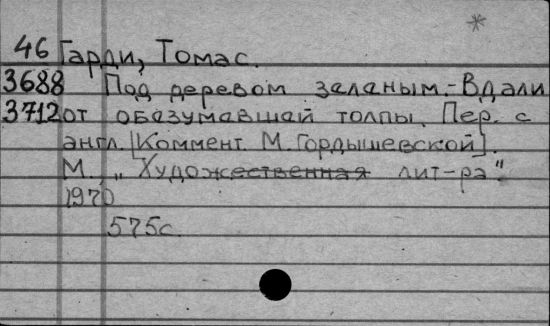 46 Гарди, Томас.
3688 Под деревом зеланым.-Вдали
3712 от обазумавшай толпы. Пер. с
англ. [Коммент. М. Гордышевской].
М., „Художественная лит-ра".
1970
575с.